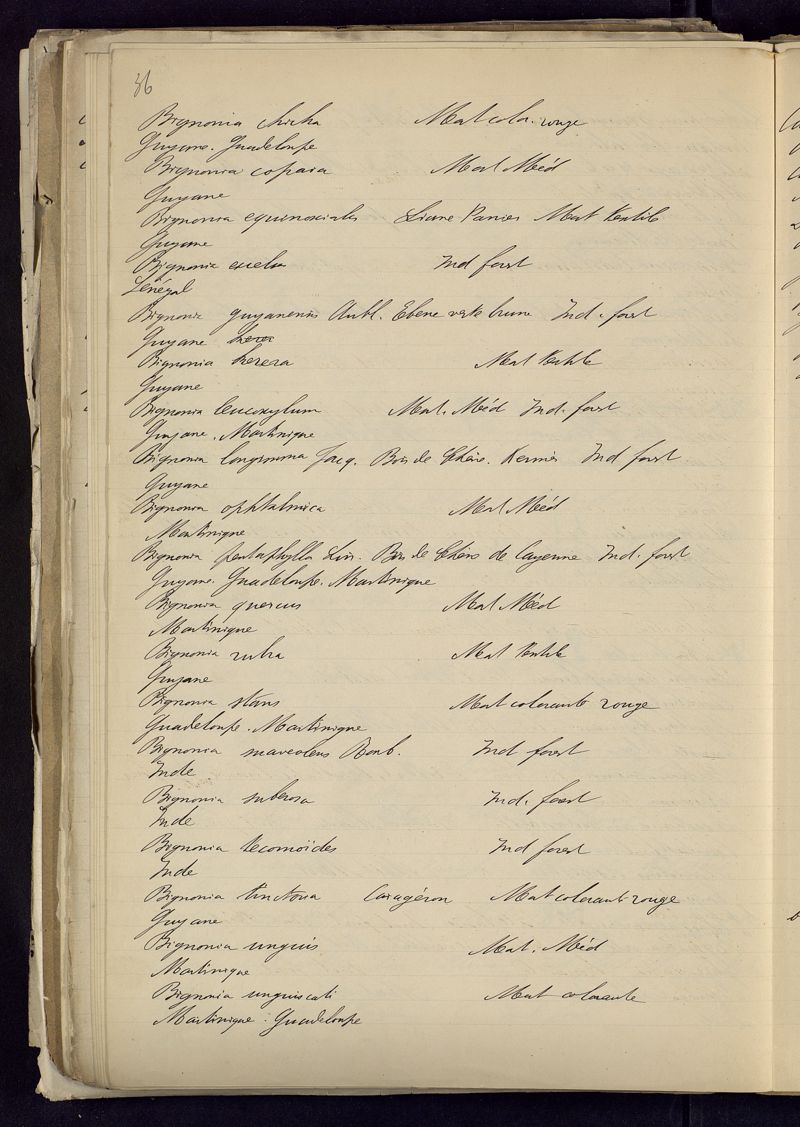 36
Bignonia chicha Mat color. rouge
Guyane. Guadeloupe
Bignonia copaia Mat Méd
Guyane
Bignonia equinoxiales Liane Panier Mat textile
Guyane
Bignonia excelsa Ind forest
Sénégal
Bignonia guyanensis Aubl. Ebene verte brune Ind. forest
Guyane
Bignonia kerera Mat textile
Guyane
Bignonia leucoxylum Mat. Méd Ind. forest
Guyane. Martinique
Bignonia longissima Jacq. Bois de Chêne. Ind forest
Guyane
Bignonia ophtalmica Mat Méd
Martinique
Bignonia pentaphylla Lin. Bois de Chêne de Cayenne Ind. forest
Guyane. Guadeloupe. Martinique
Bignonia quercus Mat Méd
Martinique
Bignonia rubra Mat textile
Guyane
Bignonia stans Mat colorante rouge
Guadeloupe. Martinique
Bignonia suaveolens Roxb. Ind forest
Inde
Bignonia suberosa Ind. forest
Inde
Bignonia tecomoïdes Ind forest
Inde
Bignonia tinctoria Mat colorante rouge
Guyane
Bignonia unguis Mat. Méd
Martinique
Bignonia unguiscati Mat colorante
Martinique. Guadeloupe